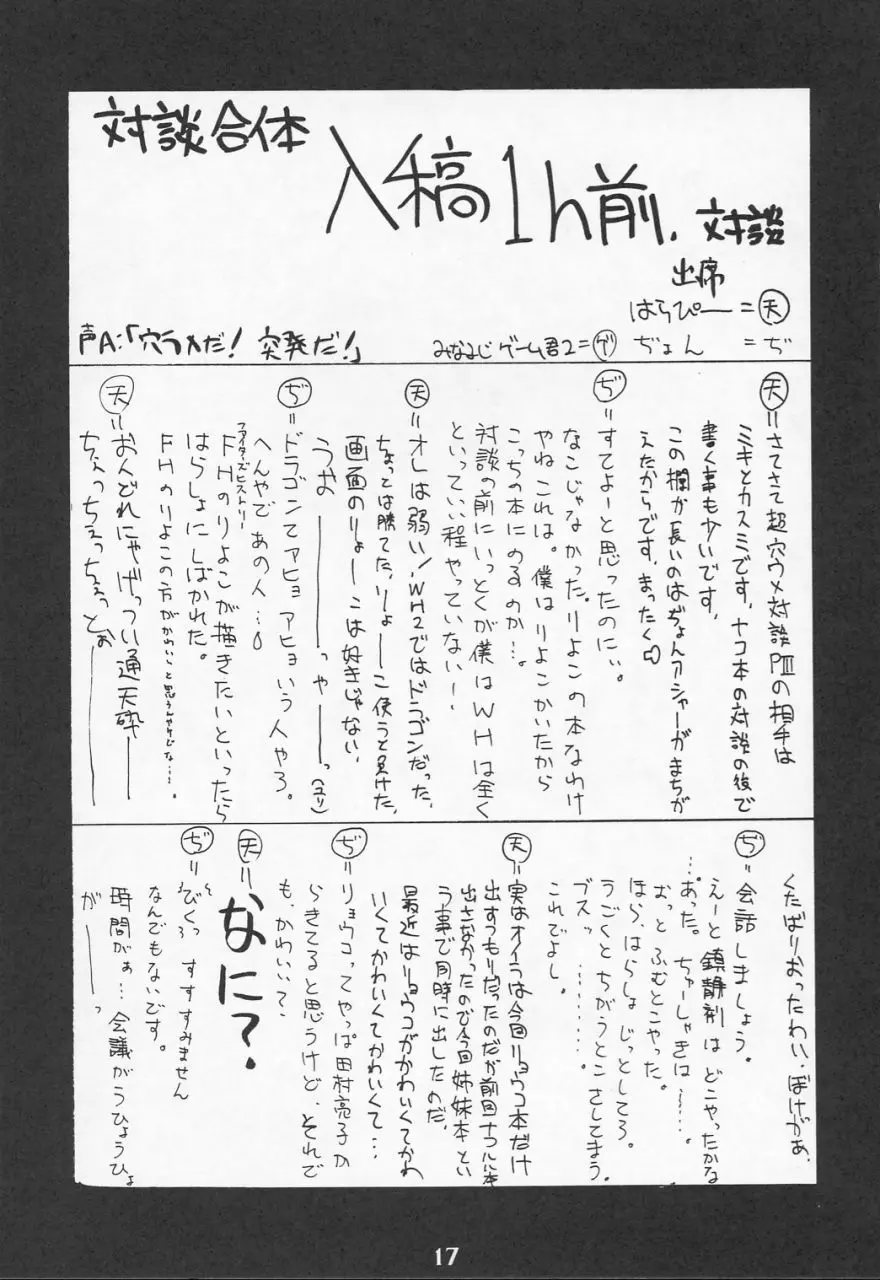 対談合体
入稿1h前.対談
出席
はらぴー=天
ぢょん =ぢ
みなみじゲーム君2=ゲ
声A:「穴ラメだ! 突発だ!」
天=さてさて超穴ウメ対談PⅢの相手は
ミキとカスミです、ナコ本の対談の後で
書く事も少いです、
この欄が長いのはぢょんアシャーがまちが
えたからです、まったく
ぢ=すてよーと思ったのにぃ。
なこじゃなかった。りよこの本なわけ
やねこれは。僕はりよこかいたから
こっちの本にのるのか…。
対談の前にいっとくが僕はWHは全く
といっていい程やっていないー、
天=オレは弱い!WH2ではドラゴンだった、
ちょっとは勝てた、りょーこ使うと負けた、
画面のりょーこは好きじゃない、
うおーーーっやーーっ(ユリ)
ぢ=ドラゴンてアヒョアヒョいう人やろ。
へんやであの人…。
ファイターズヒストリー
FHのりよこが描きたいといったら
はらしょにしばかれた。
FHのりよこの方がかわいいと思うんやけどな…。
天=おんどれにゃげっつい通天砕ーー
ちぇっちぇっちぇっとぉーーー
くたばりおったわい、ぼけがぁ、
ぢ=会話しましょう。
えーと鎮静剤はどこやったかな
…あった。ちゅーしゃきは……。
おっとふむとこやった。
ほら、はらしょじっとしてろ。
うごくとちがうとこさしてまう。
ブスッ………。
これでよし。
天=実はオイラは今回リョウコ本だけ
出すつもりだったのだが前回ナコルル本
出さなかったので今回姉妹本とい
う事で同時に出したのだ、
最近はリョウコがかわいくてかわ
いくてかわいくてかわいくて…
ぢ=リョウコってやっぱ田村亮子か
らきてると思うけど、それで
も、かわいい?
天=なに?
ぢ=びくっ すすすみません
なんでもないです。
時間がぁ…会議がうひょうひょ
がーーっ
17